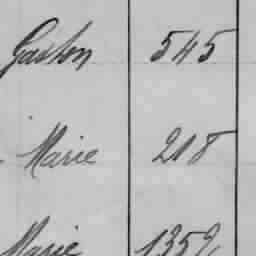 Gaston 545
Marie 218
Marie 1352